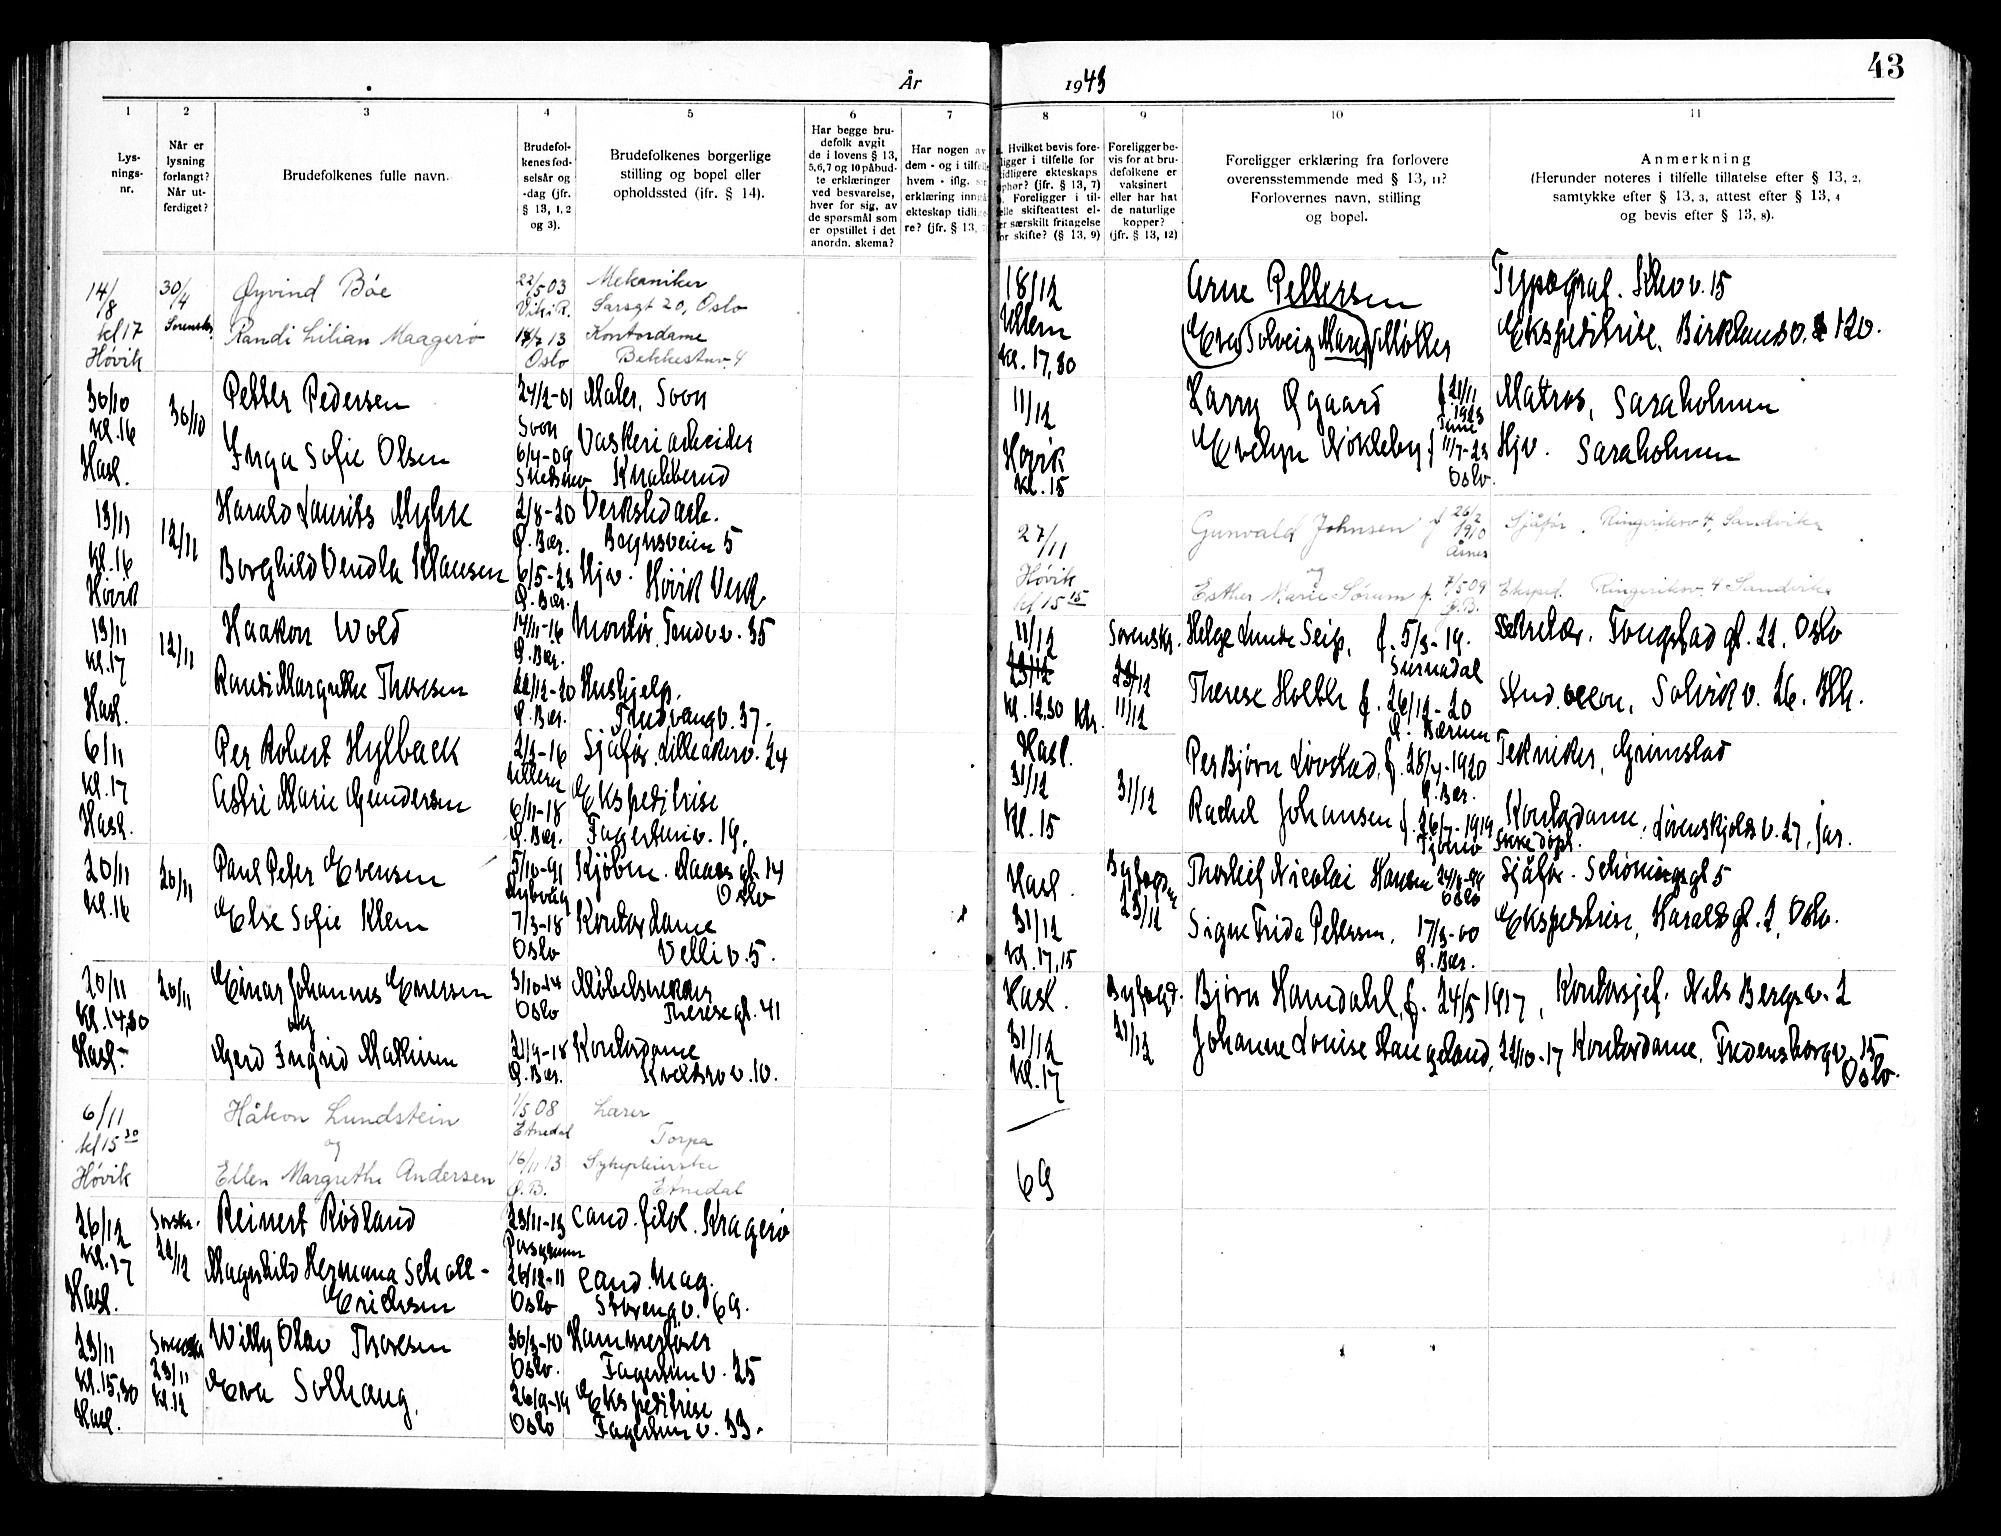 År
1943
43
1
2
3
4
5
6
7
8
9
10
11
Lys-
nings-
nr.
Når er
lysning
forlangt?
Når ut-
ferdiget?
Brudefolkenes fulle navn.
Brudefol-
kenes fød-
selsår og
-dag (jfr.
§ 13, 1, 2
og 3).
Brudefolkenes borgerlige
stilling og bopel eller
opholdssted (jfr. § 14).
Har begge bru-
defolk avgit
de i lovens § 13,
5,6,7 og 10 påbud-
te erklæringer
ved besvarelse,
hver for sig, av
de spørsmål som
er opstillet i det
anordn. skema?
Har nogen av
dem - og i tilfelle
hvem - iflg.
erklæring inngå
ekteskap tidlige
re? (jfr. § 13,
Hvilket bevis fore-
ligger i tilfelle for
tidligere ekteskaps
ophør? (jfr. § 13, 7)
Foreligger i til-
felle skifteattest el-
er særskilt fritagelse
for skifte? (§ 13, 9)
Foreligger be-
vis for at bru-
defolkene er
vaksinert
eller har hat
de naturlige
kopper?
(jfr. § 13, 12)
Foreligger erklæring fra forlovere
overensstemmende med § 13, 11?
Forlovernes navn, stilling
og bopel.
Anmerkning
(Herunder noteres i tilfelle tillatelse efter § 13, 2,
samtykke efter § 13, 3, attest efter § 13, 4
og bevis efter § 13, 8).
14/8 30/4 Øyvind Bøe 22/5 03 Mekaniker
Sarsgt 20, Oslo
kl 17 Sorenskr. Randi Lilian Maagerø 13 Kontordame
Høvik Oslo Bekkestuv. 4
30/10 30/10 Petter Pedersen 24/2-01 Maler, Soon
kl. 16 Soon
Inga Sofie Olsen 6/4-09 Vaskeriarbeider
Hasl. Knabberud
13/11 12/11 Harald Laurits Myhre 2/8-20 Verkstedarb.
kl. 16 Ø. Bær. Bognsveien 5
Borghild Vendla Klausen 6/5-23 Hjv. Høvik Verk
Høvik Ø. Bær.
13/11 12/11 Haakon Wold 14/11-16 Montør
kl. 17 Ø. Bær.
Randi Margrethe Thoresen 22/12-20 Hushjelp.
Hasl. Ø. Bær. v. 37.
6/11 Per Robert Hylback 2/3-16 Sjåfør. Lilleakerv. 24
kl. 17 Ullern
Astri Marie Gundersen 6/11-18 Ekspeditrise
Hasl. Ø. Bær. Fagertunv. 19.
20/11 20/11 Paul Peter Evensen 5/10-91 Kjøbm.
kl. 16 Oslo
Else Sofie Klem 7/3-18 Kontordame
Oslo Velliv. 5.
20/11 20/11 Einar Johannes Evensen 3/10-14 Møbelsnekker
kl. 14,30 og Oslo Theresegt. 41
Hasl. Gerd Ingrid Mathisen 21/9-18 Kontordame
Ø. Bær. v. 10.
6/11 Håkon Lundstein 1/5 08 Lærer
kl 15 30 og Etnedal Torpa
Høvik Ellen Margrethe Andersen 16/11 13 Sykepleierske
Ø.B. Etnedal
26/12 Sorskr. Reinert Rødland 23/11-13 Cand. filol. Kragerø
kl. 17 22/12 Porsgrunn
Magnhild Hermana Scholl- 26/12-11 Cand. Mag.
Hasl. Erichsen Oslo Storengv. 69.
23/11 Willy Olav Thoresen 30/3-10
kl. 15,30 23/11 Oslo. Fagertunv. 25
Hasl. kl. 12 Eva Solhaug. 26/9-19 Ekspeditrise
Oslo Fagertunv. 33.
18/12 Arne Pettersen Typograf. v. 15
Ullern Eva Solveig Møller Ekspeditrise. Birklundv. 120.
kl. 17,30
11/12 Harry Øgaard f. 21/11 1923 Matros, Saraholmen
Høvik Evelyn Nökleby f. 11/7-23 Hjv. Saraholmen
kl. 15 Oslo.
27/11 Gunvald Johnsen f. 26/2 1910 Sjåfør. Ringeriksv. 4, Sandvika
Årnes
Høvik og
kl 15 15 Esther Marie Sørum f. 7/5 09 Eksped. Ringeriksv. 4 Sandvika
Ø.B.
11/12 Sorenskr. Helge Lunde Seip, f. 5/3-19. Sekretær. gt. 22, Oslo
23/12 23/12 Surnadal
kl. 12,30 11/12 Therese Holtte f. 26/12-20 Stud. oecon, Solvikv. 26. Blh.
Hasl. Ø. Bærum
31/12 31/12 Per Bjørn Lövstad, f. 28/4-1920 Tekniker, Grimstad
Ø. Bær.
kl. 15 Rachel Johansen f. 26/7-1919 Kontordame, Løvenskjoldsv. 27, Jar.
Ikke døpt.
Hasl. Byfogden Thorleif Nicolai Hansen Sjåfør. Schöningsgt 5
31/12 23/12 Oslo
kl. 17,15 Signe Frida Pettersen, 17/3-00 Ekspeditrise, Haraldsgt. 2, Oslo.
Ø. Bær.
Hasl. Byfogd. Bjørn Hamdahl, f. 24/5 1917, Kontorsjef. Nils Bergsv. 2
31/12 21/12 Johanne Louise Haugeland, 22/10-17 Kontordame, Fredensborgv. 15
kl. 17 Oslo.
69